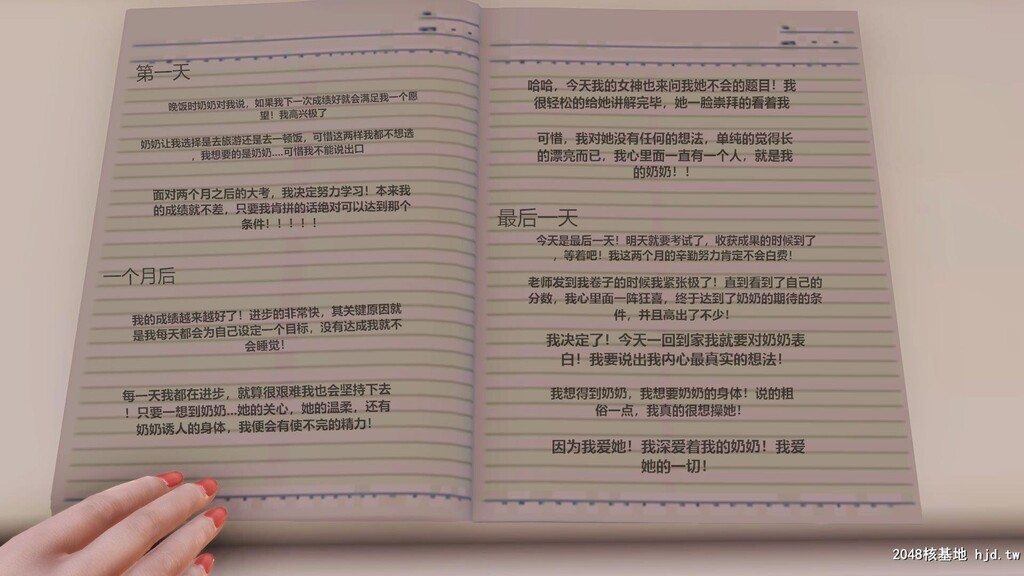 第一天
晚饭时奶奶对我说，如果我下一次成绩好就会满足我一个愿
望！我高兴极了
奶奶让我选择是去旅游还是去一顿饭，可惜这两样我都不想选
，我想要的是奶奶....可惜我不能说出口
面对两个月之后的大考，我决定努力学习！本来我
的成绩就不差，只要我肯拼的话绝对可以达到那个
条件！！！！！
一个月后
我的成绩越来越好了！进步的非常快，其关键原因就
是我每天都会为自己设定一个目标，没有达成我就不
会睡觉！
每一天我都在进步，就算很艰难我也会坚持下去
！只要一想到奶奶...她的关心，她的温柔，还有
奶奶诱人的身体，我便会有使不完的精力！
哈哈，今天我的女神也来问我她不会的题目！我
很轻松的给她讲解完毕，她一脸崇拜的看着我
可惜，我对她没有任何的想法，单纯的觉得长
的漂亮而已，我心里面一直有一个人，就是我
的奶奶！！
最后一天
今天是最后一天！明天就要考试了，收获成果的时候到了
，等着吧！我这两个月的辛勤努力肯定不会白费！
老师发到我卷子的时候我紧张极了！直到看到了自己的
分数，我心里面一阵狂喜，终于达到了奶奶的期待的条
件，并且高出了不少！
我决定了！今天一回到家我就要对奶奶表
白！我要说出我内心最真实的想法！
我想得到奶奶，我想要奶奶的身体！说的粗
俗一点，我真的很想操她！
因为我爱她！我深爱着我的奶奶！我爱
她的一切！
2048核基地 hjd.tw